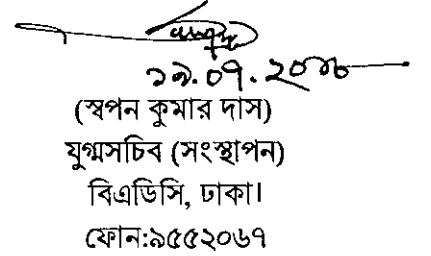 ১৯.০৭.২০১৮
(স্বপন কুমার দাস)
যুগ্মসচিব (সংস্থাপন)
বিএডিসি, ঢাকা।
ফোন:৯৫৫২০৬৭